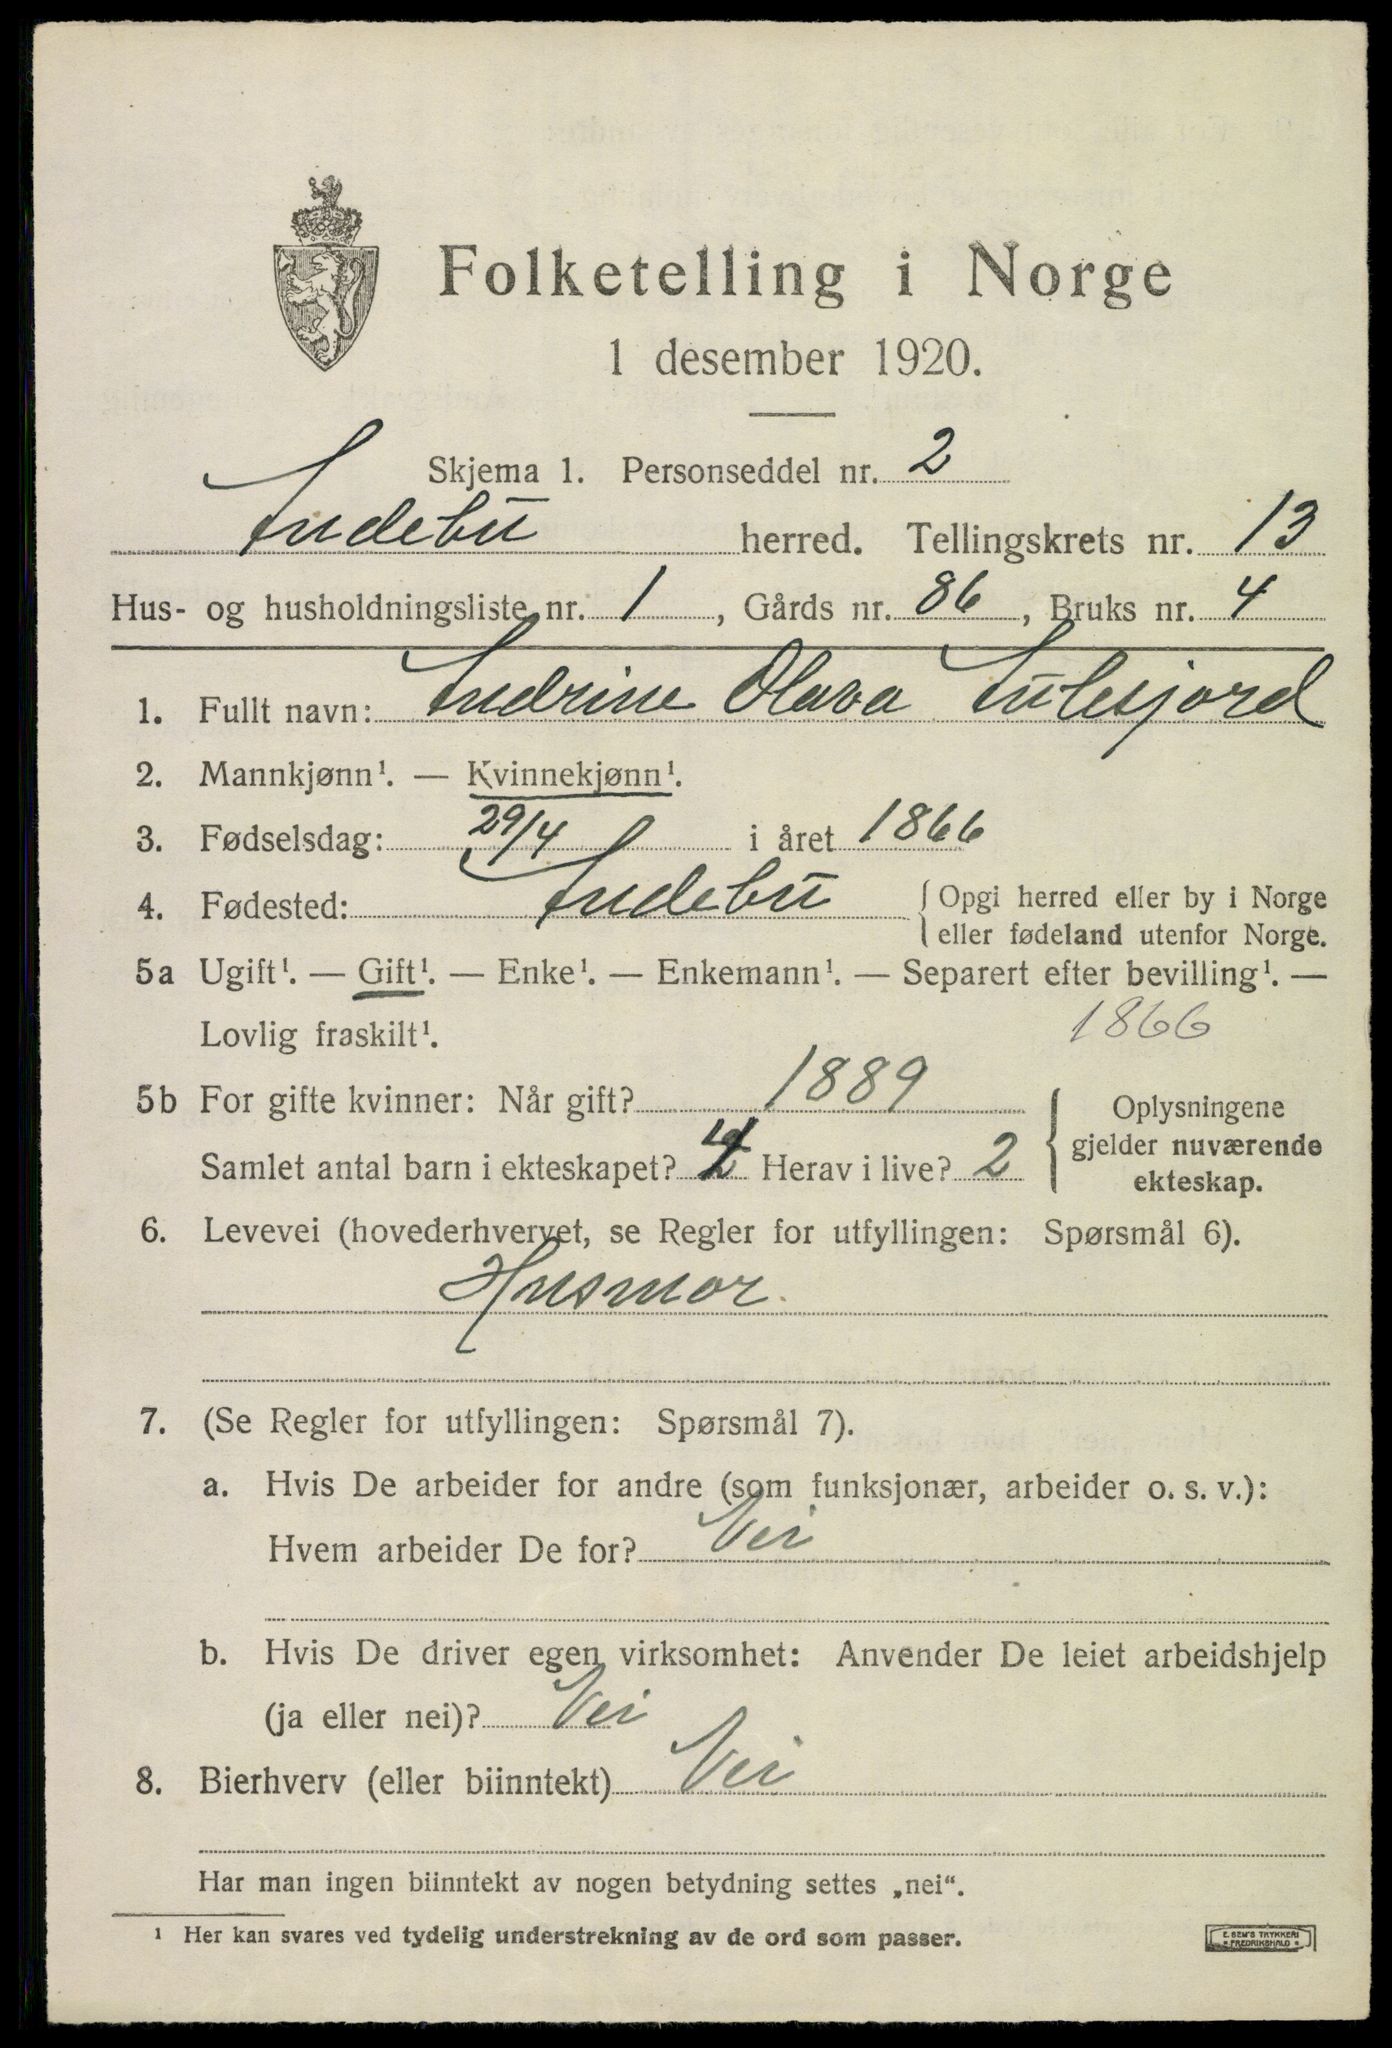 Folketelling i Norge
1 desember 1920.
Skjema 1. Personseddel nr. 2
Andebu herred. Tellingskrets nr. 13
Hus- og husholdningsliste nr. 1, Gårds nr. 86, Bruks nr. 4
1. Fullt navn: Andrine Olava Aulesjord
2. Mannkjønn¹. — Kvinnekjønn¹.
3. Fødselsdag: 29/4 i året 1866
4. Fødested: Andebu { Opgi herred eller by i Norge
eller fødeland utenfor Norge.
5a Ugift¹. — Gift¹. — Enke¹. — Enkemann¹. — Separert efter bevilling¹. —
Lovlig fraskilt¹. 1866
5b For gifte kvinner: Når gift? 1889
Samlet antal barn i ekteskapet? 4 Herav i live? 2
{ Oplysningene
gjelder nuværende
ekteskap.
6. Levevei (hovederhvervet, se Regler for utfyllingen: Spørsmål 6).
Husmor.
7. (Se Regler for utfyllingen: Spørsmål 7).
a. Hvis De arbeider for andre (som funksjonær, arbeider o. s. v.):
Hvem arbeider De for? Nei
b. Hvis De driver egen virksomhet: Anvender De leiet arbeidshjelp
(ja eller nei)? Nei
8. Bierhverv (eller biinntekt) Nei
Har man ingen biinntekt av nogen betydning settes „nei“.
¹ Her kan svares ved tydelig understrekning av de ord som passer.
E. SEM'S TRYKKERI
* FREDRIKSHALD *